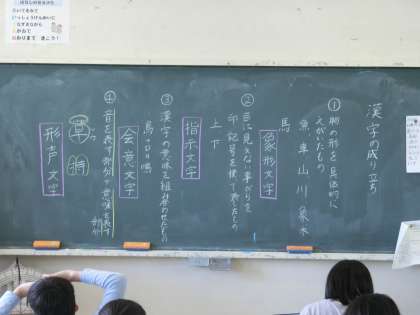 漢字の成り立ち
①物の形を具体的に
えがいたもの
魚 車 山 川 象 木
馬
象形文字
②目に見えない事がらを
印や記号を使って表したもの
上 下
指示文字
③漢字の意味を組み合わせたもの
鳥＋口 鳴
会意文字
④音を表す部分と意味を表す
部分
草 時
形声文字